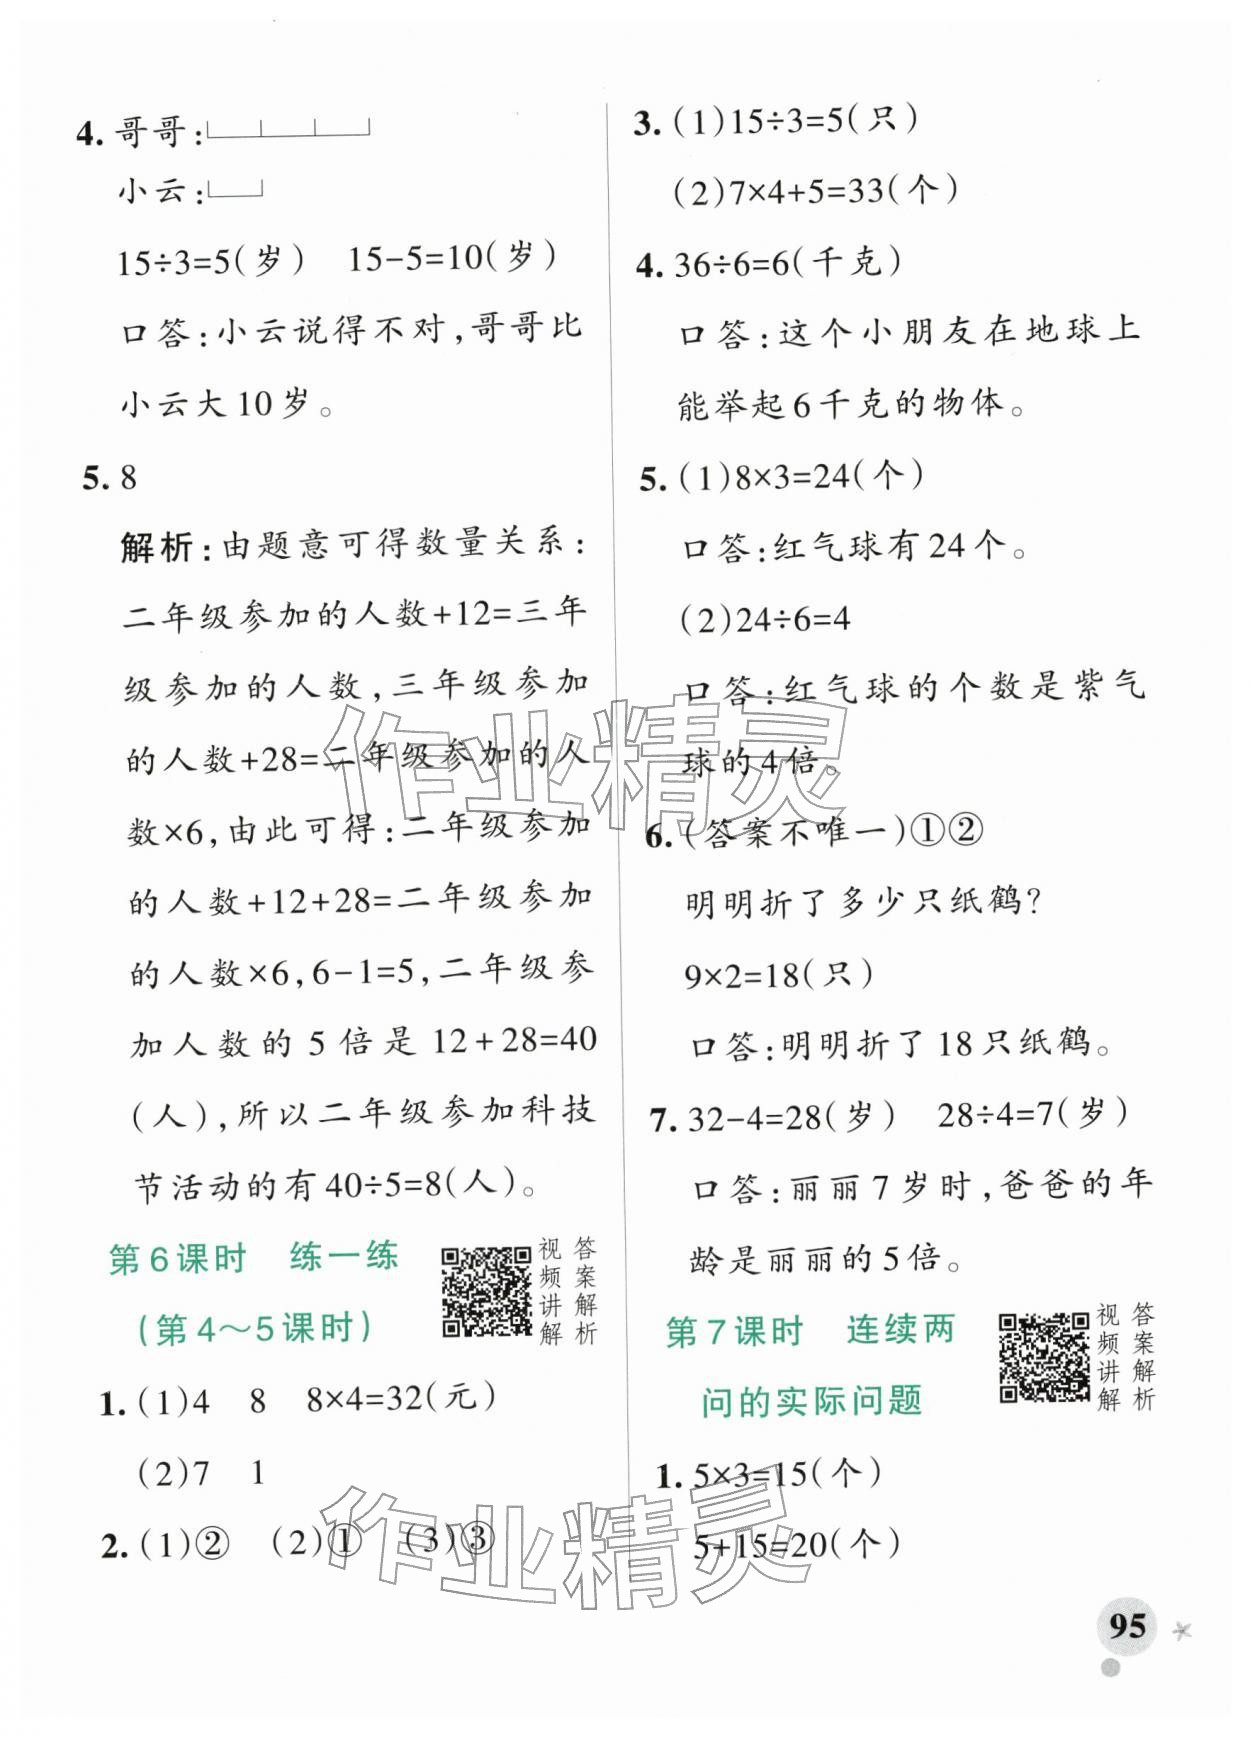 4. 哥哥:
小云:
15÷3=5(岁) 15-5=10(岁)
口答:小云说得不对,哥哥比
小云大10岁。
5. 8
解析:由题意可得数量关系:
二年级参加的人数+12=三年
级参加的人数,三年级参加
的人数+28=二年级参加的人
数×6,由此可得:二年级参加
的人数+12+28=二年级参加
的人数×6,6-1=5,二年级参
加人数的5倍是12+28=40
(人),所以二年级参加科技
节活动的有40÷5=8(人)。
第6课时 练一练
(第4~5课时)
视频讲解
答案解析
1. (1)4 8 8×4=32(元)
(2)7 1
2. (1)② (2)① (3)③
3. (1)15÷3=5(只)
(2)7×4+5=33(个)
4. 36÷6=6(千克)
口答:这个小朋友在地球上
能举起6千克的物体。
5. (1)8×3=24(个)
口答:红气球有24个。
(2)24÷6=4
口答:红气球的个数是紫气
球的4倍。
6. (答案不唯一)①②
明明折了多少只纸鹤?
9×2=18(只)
口答:明明折了18只纸鹤。
7. 32-4=28(岁) 28÷4=7(岁)
口答:丽丽7岁时,爸爸的年
龄是丽丽的5倍。
第7课时 连续两
问的实际问题
视频讲解
答案解析
1. 5×3=15(个)
5+15=20(个)
作业精灵
作业精灵
95